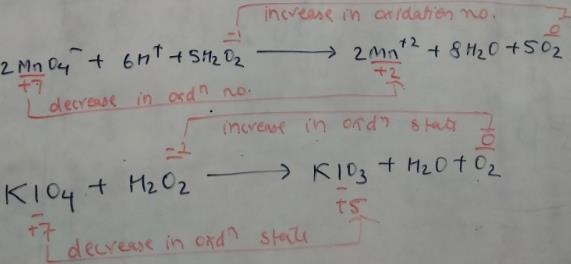 increase in oxidation no.
-1 0
2MnO4⁻ + 6H⁺ + 5H2O2 ⟶ 2Mn⁺² + 8H2O + 5O2
+7 +2
decrease in oxdⁿ no.
increase in oxdⁿ state
-2 0
KIO4 + H2O2 ⟶ KIO3 + H2O + O2
+7 +5
decrease in oxdⁿ state